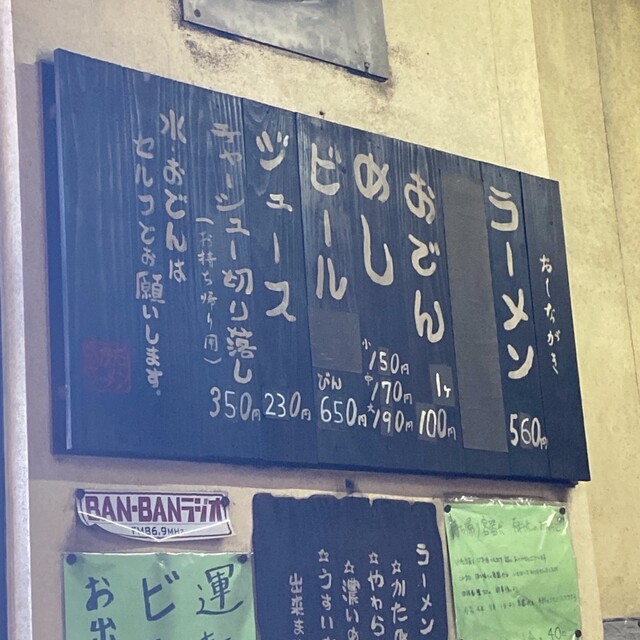 おしながき
ラーメン 560円
おでん 1ヶ 100円
めし 小150円 中170円 大190円
ビール びん 650円
ジュース 230円
チャーシュー切り落し 350円
(お持ち帰り用)
水・おでんは
セルフでお願いします。
BAN-BANラジオ
FM86.9MHz
運
ビ
お出
ラーメン
☆かため
☆やわら
☆濃いめ
☆うすい
出来ま